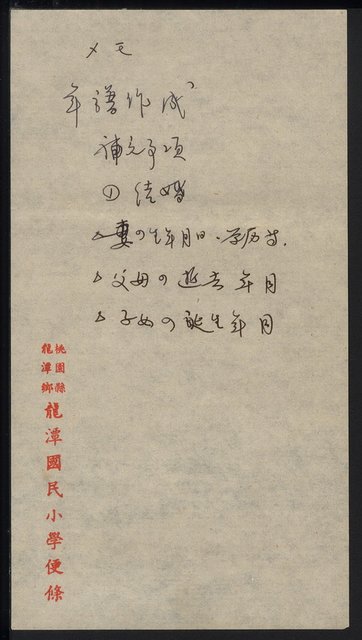 メモ
年譜作成
補充事項
① 结婚
△妻の生年月日、学历等.
△父母の逝去年月
△子女の誕生年月
桃園縣
龍潭鄉
龍潭國民小學便條